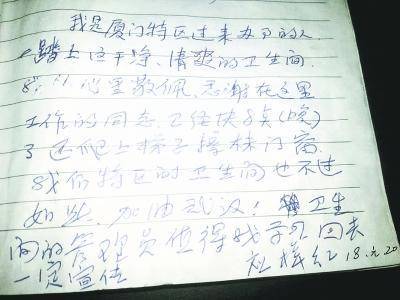 我是厦门特区过来办事的人
踏上这干净、清爽的卫生间
我 心里敬佩、感谢在这里
工作的同志.已经快8点(晚)
了还爬上梯子擦抹门窗.
我们特区的卫生间也不过
如此.加油武汉! 卫生
间的管理员值得我学习 回去
一定宣传 红 18.元.20